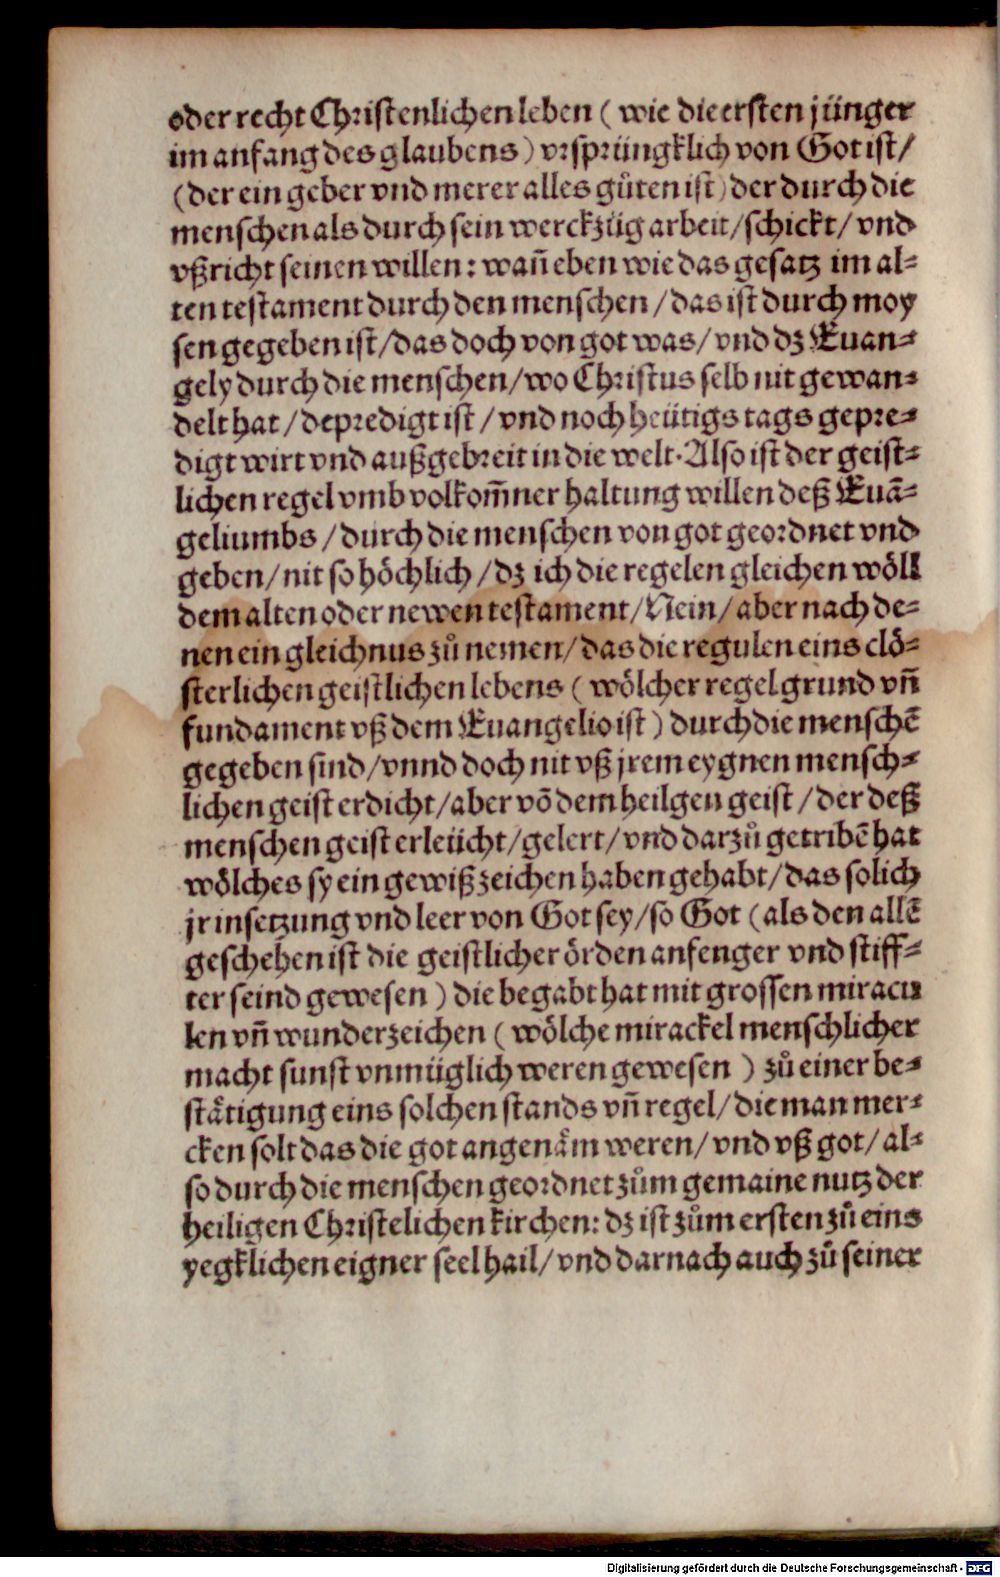 oder recht Christenlichen leben ( wie die ersten jünger
im anfang des glaubens ) vrsprüngklich von Got ist/
(der ein geber vnd merer alles gůten ist) der durch die
menschen als durch sein werckzüg arbeit/schickt/ vnd
vßricht seinen willen: wañ eben wie das gesatz im al⸗
ten testament durch den menschen /das ist durch moy
sen gegeben ist/das doch von got was/ vnd dz Euan⸗
gely durch die menschen/wo Christus selb nit gewan⸗
delt hat /depredigt ist / vnd noch heütigs tags gepre⸗
digt wirt vnd außgebreit in die welt. Also ist der geist⸗
lichen regel vmb volkom̃ner haltung willen deß Euā⸗
geliumbs /durch die menschen von got geordnet vnd
geben/nit so höchlich /dz ich die regelen gleichen wöll
dem alten oder newen testament/Nein/aber nach de⸗
nen ein gleichnus zů nemen/das die regulen eins clö⸗
sterlichen geistlichen lebens ( wölcher regel grund vñ
fundament vß dem Euangelio ist ) durch die menschē
gegeben sind/vnnd doch nit vß jrem eygnen mensch⸗
lichen geist erdicht/aber vō dem heilgen geist /der deß
menschen geist erleücht/gelert/vnd darzů getribē hat
wölches sy ein gewiß zeichen haben gehabt/das solich
jr insetzung vnd leer von Got sey/so Got (als den allē
geschehen ist die geistlicher örden anfenger vnd stiff⸗
ter seind gewesen ) die begabt hat mit grossen miracu
len vñ wunderzeichen ( wölche mirackel menschlicher
macht sunst vnmüglich weren gewesen ) zů einer be⸗
stätigung eins solchen stands vñ regel/die man mer⸗
cken solt das die got angenäm weren/vnd vß got/al⸗
so durch die menschen geordnet zům gemaine nutz der
heiligen Christelichen kirchen: dz ist zům ersten zů eins
yegklichen eigner seel hail/vnd darnach auch zů seiner
Digitalisierung gefördert durch die Deutsche Forschungsgemeinschaft - DFG